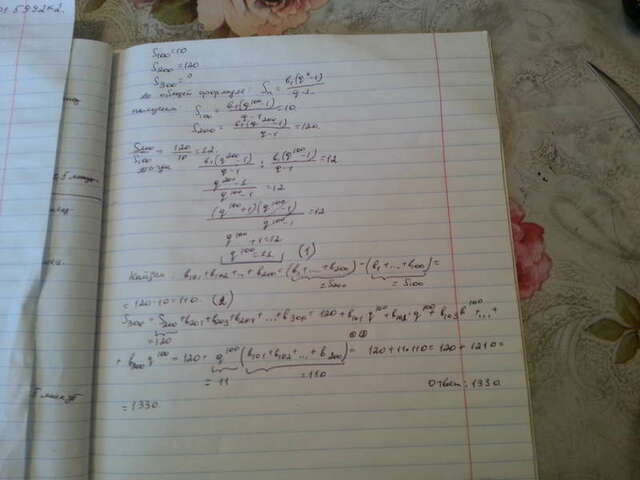 S₁₀₀=10
S₂₀₀=120
S₃₀₀=?
по общей формуле Sₙ = b₁(qⁿ-1)/(q-1)
получаем S₁₀₀ = b₁(q¹⁰⁰-1)/(q-1) = 10
S₂₀₀ = b₁(q²⁰⁰-1)/(q-1) = 120
S₂₀₀/S₁₀₀ = 120/10 = 12
тогда b₁(q²⁰⁰-1)/(q-1) : b₁(q¹⁰⁰-1)/(q-1) = 12
(q²⁰⁰-1)/(q¹⁰⁰-1) = 12
(q¹⁰⁰+1)(q¹⁰⁰-1)/(q¹⁰⁰-1) = 12
q¹⁰⁰+1=12
q¹⁰⁰=11 (1)
Найдем: b₁₀₁+b₁₀₂+...+b₂₀₀=(b₁+...+b₂₀₀)-(b₁+...+b₁₀₀)=
=S₂₀₀ =S₁₀₀
=120-10=110. (2)
S₃₀₀=S₂₀₀+b₂₀₁+b₂₀₂+b₂₀₃+...+b₃₀₀=120+b₁₀₁·q¹⁰⁰+b₁₀₂·q¹⁰⁰+b₁₀₃q¹⁰⁰+...+
=120
+b₂₀₀q¹⁰⁰=120+q¹⁰⁰(b₁₀₁+b₁₀₂+...+b₂₀₀)=120+11·110=120+1210=
=11 =110
Ответ: 1330
=1330